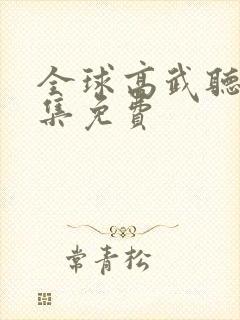 全球高武聽
集免費
常青松